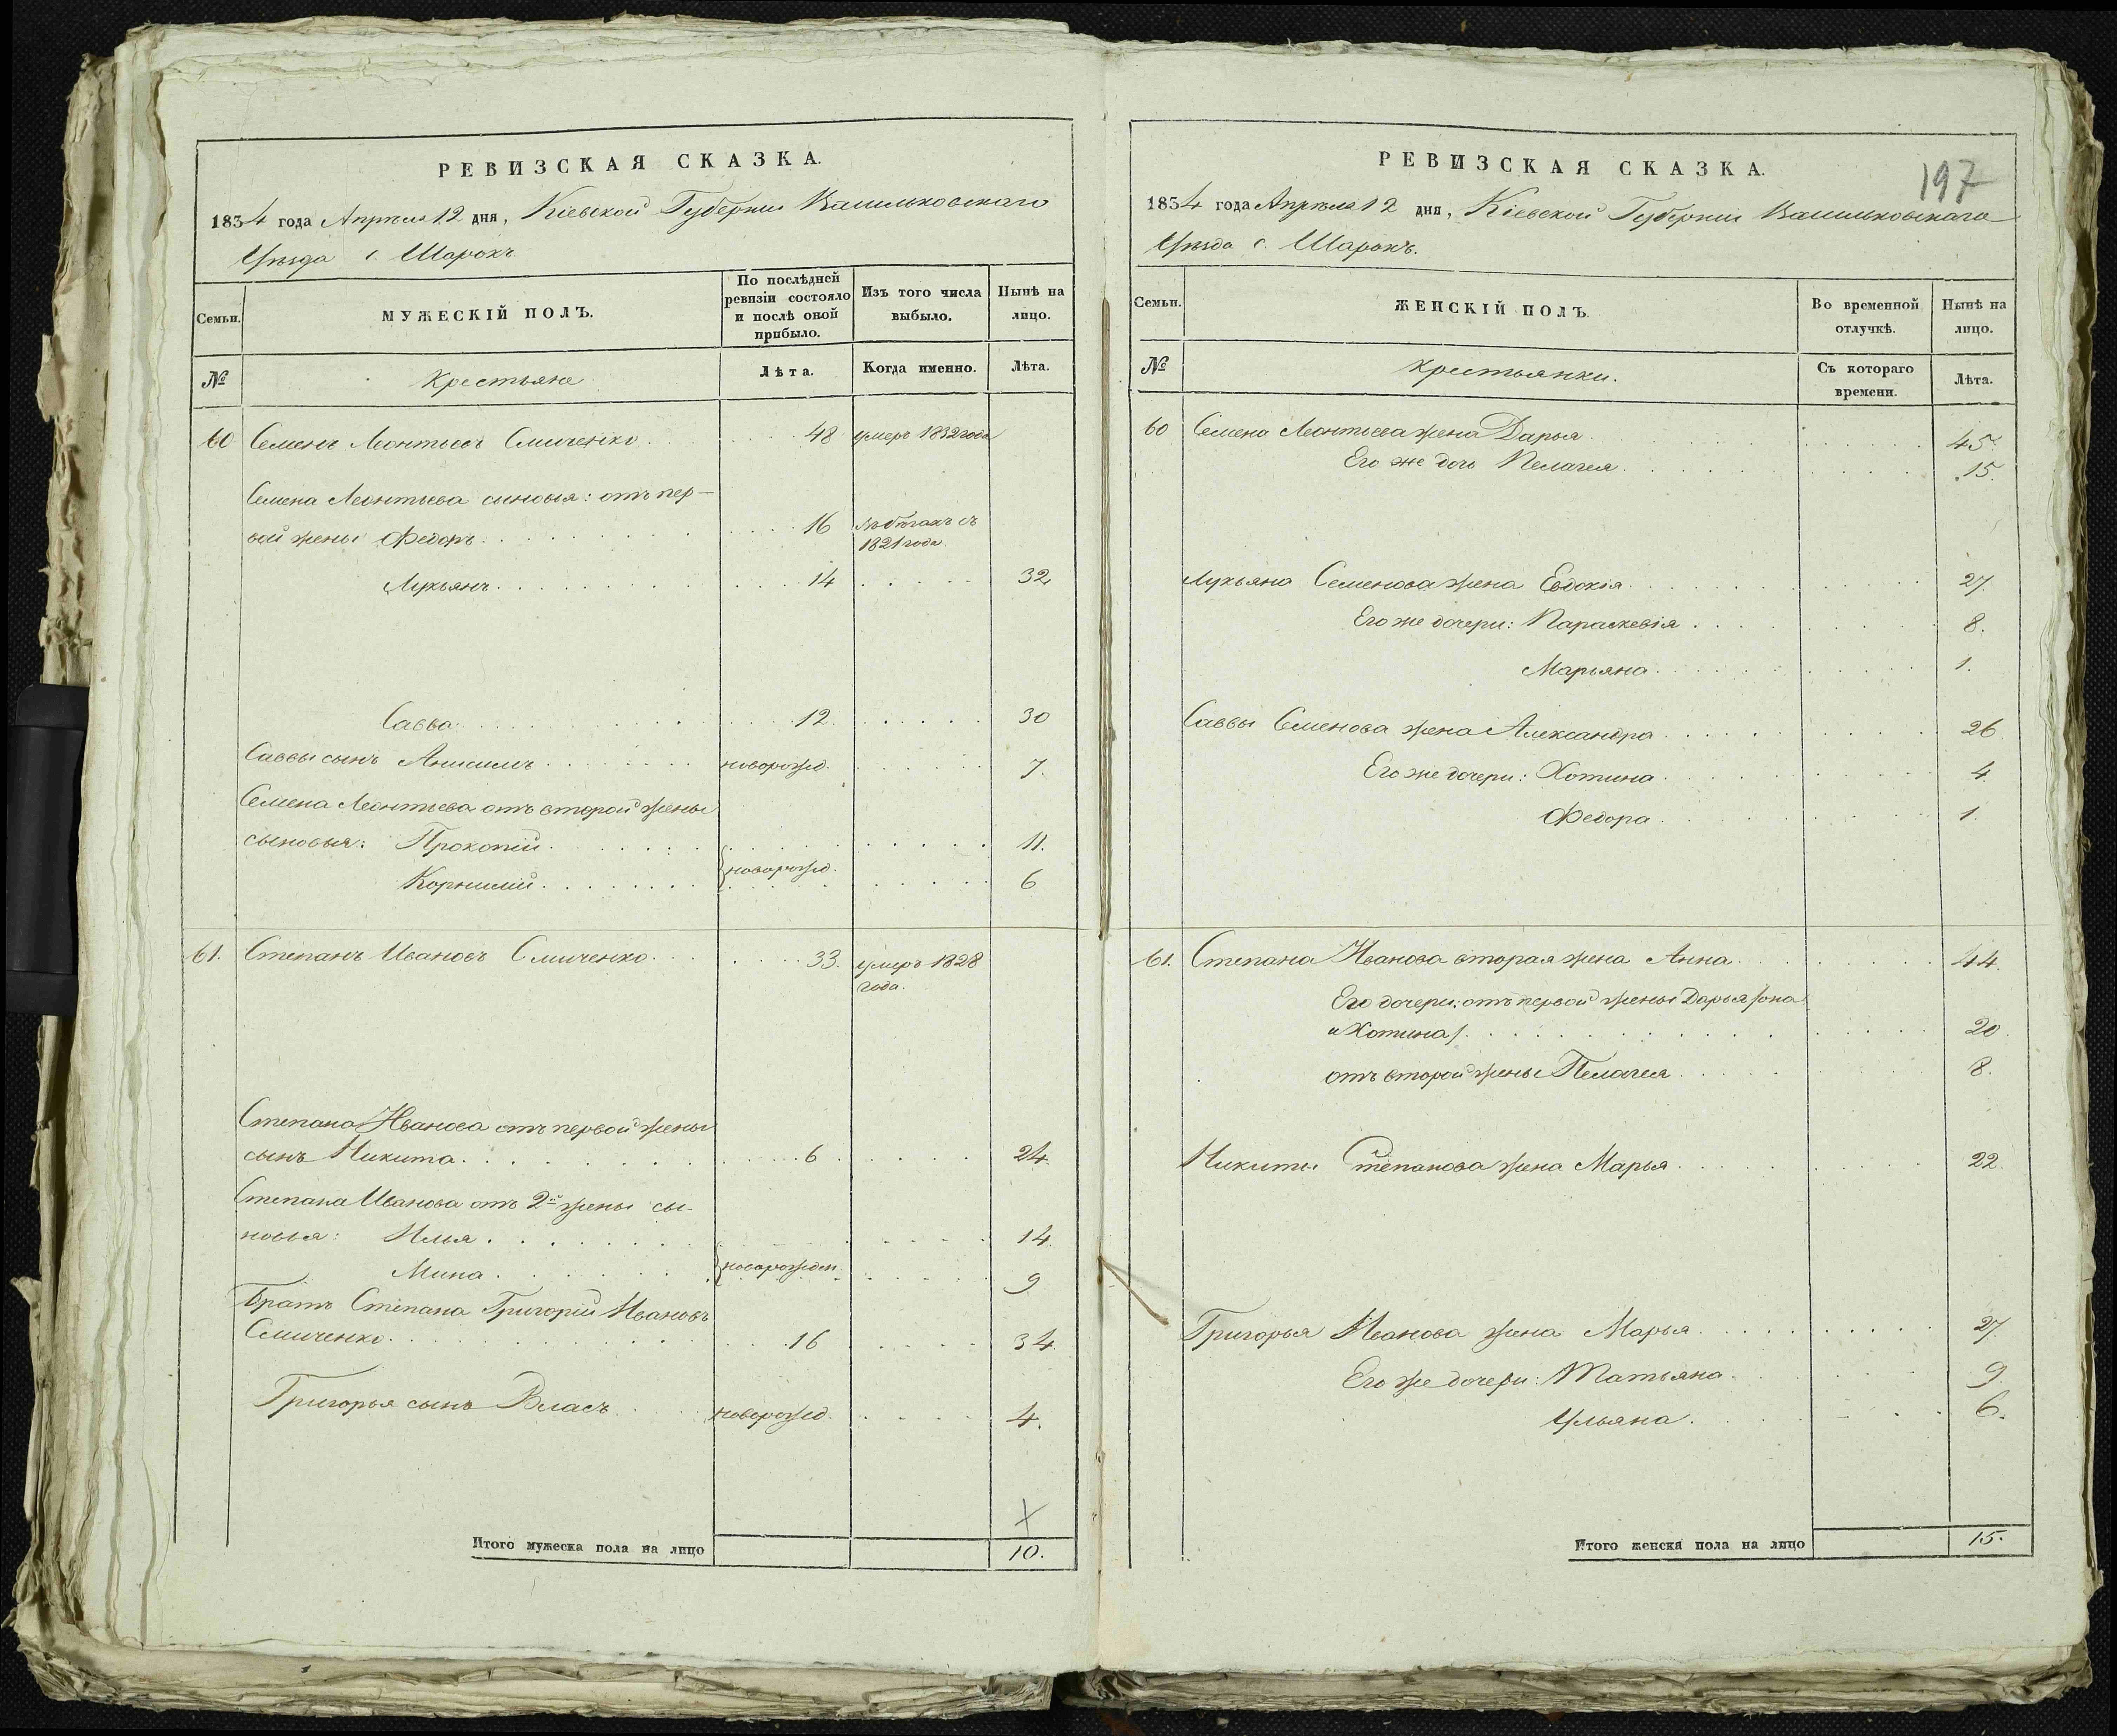 РЕВИЗСКАЯ СКАЗКА.
1834 года Апрѣля 12 дня, Кіевской Губерніи Васильковскаго
Уѣзда с. Шарокъ
Семьи. МУЖЕСКІЙ ПОЛЪ. По послѣдней ревизіи состояло и послѣ оной прибыло. Изъ того числа выбыло. Нынѣ на лицо.
№ Крестьяне Лѣта. Когда именно. Лѣта.
60 Семенъ Леонтьевъ Смиченко 48 умеръ 1832 года
Семена Леонтьева сыновья: отъ пер-
вой жены Федоръ 16 въ бѣгахъ съ
1821 года.
Лукьянъ 14 32
Савва 12 30
Саввы сынъ Анисимъ новорожд. 7.
Семена Леонтьева отъ второй жены
сыновья: Прокопій 11.
новорожд.
Корнилій 6
61. Степанъ Ивановъ Смиченко 33. умеръ 1828
года.
Степана Иванова отъ первой жены
сынъ Никита 6 24.
Степана Иванова отъ 2й жены сы-
новья: Илья 14.
новорожден.
Мина 9
Братъ Степана Григорій Ивановъ
Смиченко 16 34
Григорья сынъ Власъ новорожд. 4.
Итого мужеска пола на лицо 10.
РЕВИЗСКАЯ СКАЗКА.
197
1834 года Апрѣля 12 дня, Кіевской Губерніи Васильковскаго
Уѣзда с. Шарокъ.
Семьи. ЖЕНСКІЙ ПОЛЪ. Во временной отлучкѣ. Нынѣ на лицо.
№ Крестьянки. Съ котораго времени. Лѣта.
60 Семена Леонтьева жена Дарья 45.
Его же дочь Пелагея 15.
Лукьяна Семенова жена Евдокія 27.
Его же дочери: Параскевія 8.
Марьяна 1.
Саввы Семенова жена Александра 26
Его же дочери: Хотина 4.
Федора 1.
61. Степана Иванова вторая жена Анна 44.
Его дочери: отъ первой жены Дарья /она
и Хотина/ 20.
отъ второй жены Пелагея 8.
Никиты Степанова жена Марья 22.
Григорья Иванова жена Марья 27.
Его же дочери: Татьяна 9
Ульяна 6.
Итого женска пола на лицо 15.